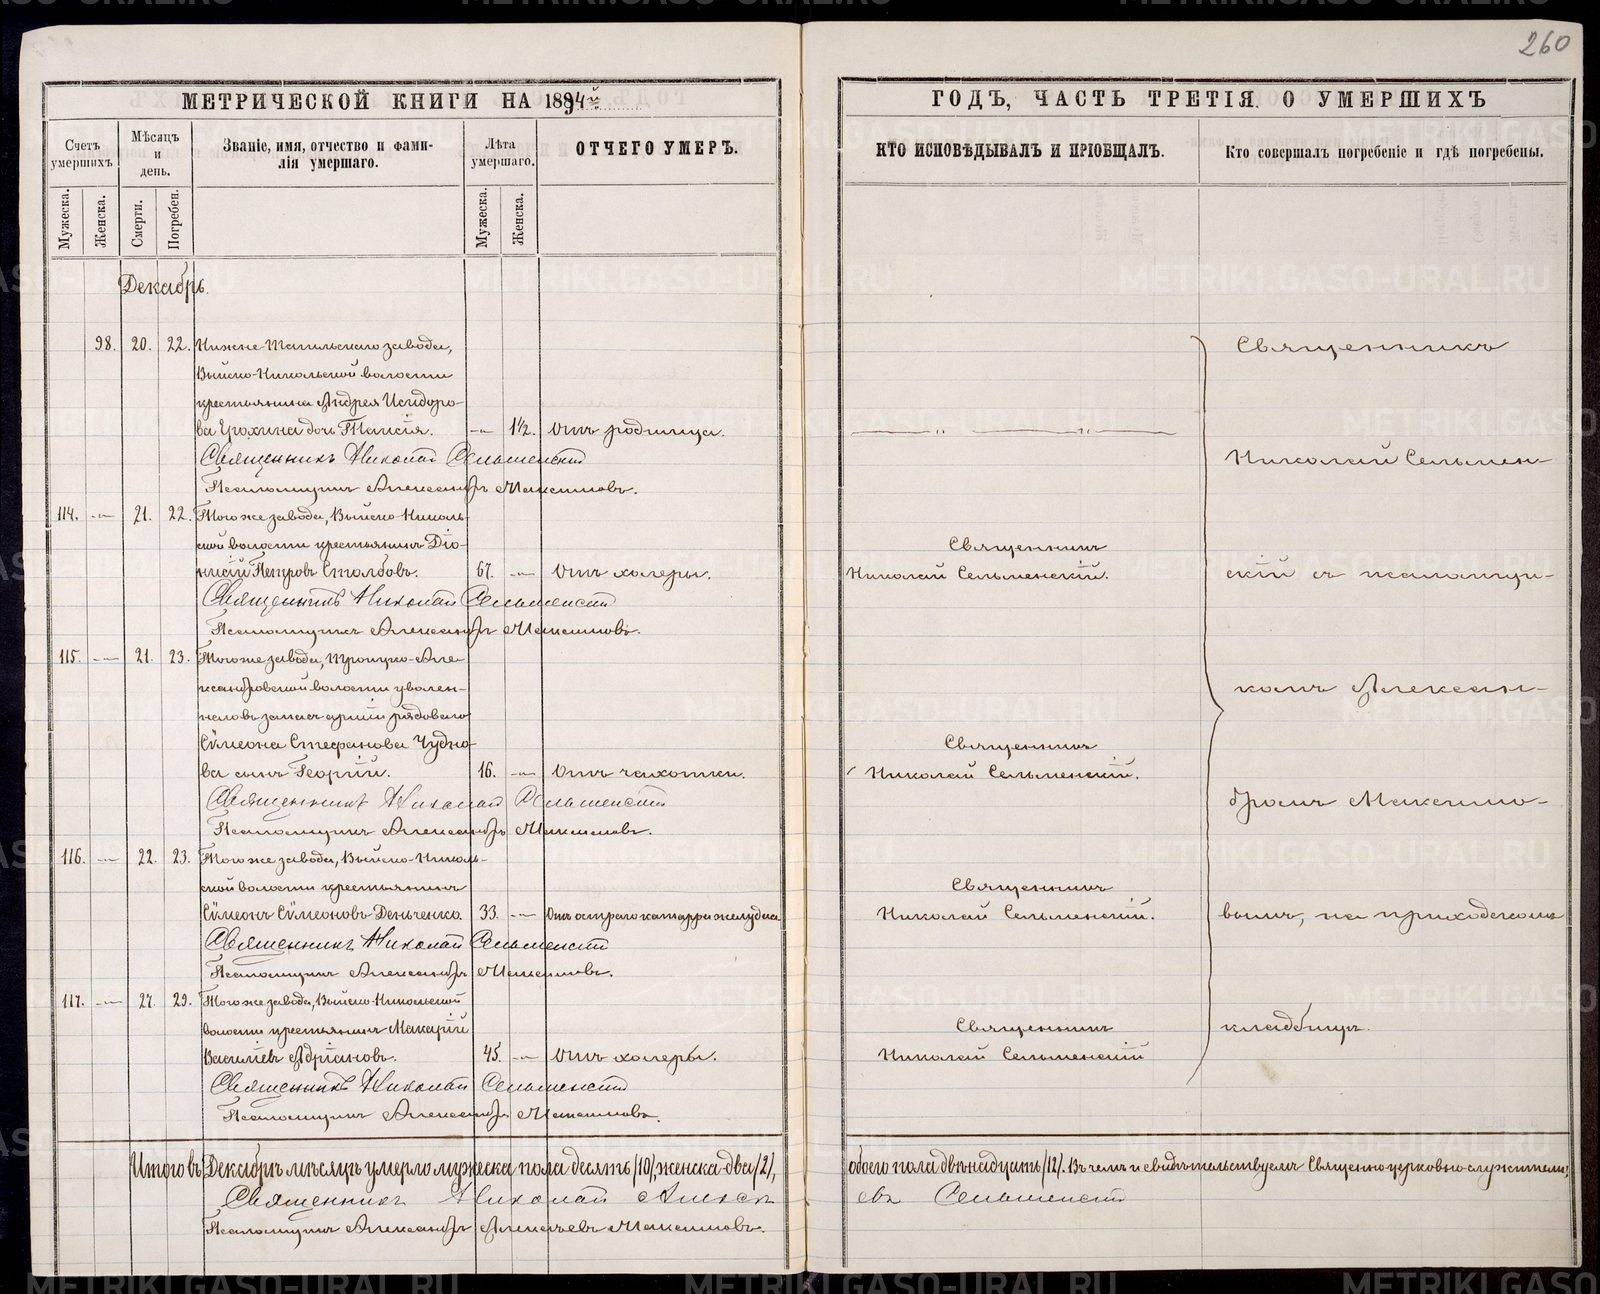 260
МЕТРИЧЕСКОЙ КНИГИ НА 1894й
ГОДЪ, ЧАСТЬ ТРЕТІЯ О УМЕРШИХЪ
Счетъ умершихъ.
Мѣсяцъ и день.
Званіе, имя, отчество и фами-
лія умершаго.
Лѣта умершаго.
ОТЧЕГО УМЕРЪ.
КТО ИСПОВѢДЫВАЛЪ И ПРІОБЩАЛЪ.
Кто совершалъ погребеніе и гдѣ погребены.
Мужеска.
Женска.
Смерти.
Погребен.
Мужеска.
Женска.
Декабрь.
98. 20. 22. Нижне-Тагильскаго завода,
Выйско-Никольской волости
крестьянина Андрея Исидоро-
ва дочь Таисія. 1½. Отъ родимца.
Священникъ Николай Сельменскій
Псаломщикъ Александръ Максимовъ.
114. 21. 22. Того же завода, Выйско-Николь-
ской волости крестьянинъ Діо-
нисій Петровъ Столбовъ. 67. Отъ холеры.
Священникъ Николай Сельменскій
Псаломщикъ Александръ Максимовъ.
115. 21. 23. Того же завода, Троицко-Але-
ксандровской волости уволен-
наго въ запасъ арміи рядоваго
Сѵмеона Стефанова Чудно-
ва сынъ Георгій. 16. Отъ чахотки.
Священникъ Николай Сельменскій
Псаломщикъ Александръ Максимовъ.
116. 22. 23. Того же завода, Выйско-Николь-
ской волости крестьянинъ
Сѵмеонъ Сѵмеоновъ Деньченко. 33. Отъ остраго катарра желудка
Священникъ Николай Сельменскій
Псаломщикъ Александръ Максимовъ.
117. 27. 29. Того же завода, Выйско-Никольской
волости крестьянинъ Макарій
Василіевъ Адріановъ. 45. Отъ холеры.
Священникъ Николай Сельменскій
Псаломщикъ Александръ Максимовъ.
Итого въ Декабрѣ мѣсяцѣ умерло мужеска пола десять /10/, женска два /2/,
Священникъ Николай Алексѣ
Псаломщикъ Александръ Алексѣевъ Максимовъ.
Священникъ
Николай Сельменскій.
Священникъ
Николай Сельменскій.
Священникъ
Николай Сельменскій.
Священникъ
Николай Сельменскій
Священникъ
Николай Сельмен-
скій съ псаломщи-
комъ Алексан-
дромъ Максимо-
вымъ, на приходскомъ
кладбищѣ.
обоего пола двѣнадцать /12/. Въ чемъ и свидѣтельствуемъ Священно-церковно-служители:
евъ Сельменскій
METRIKI.GASO-URAL.RU